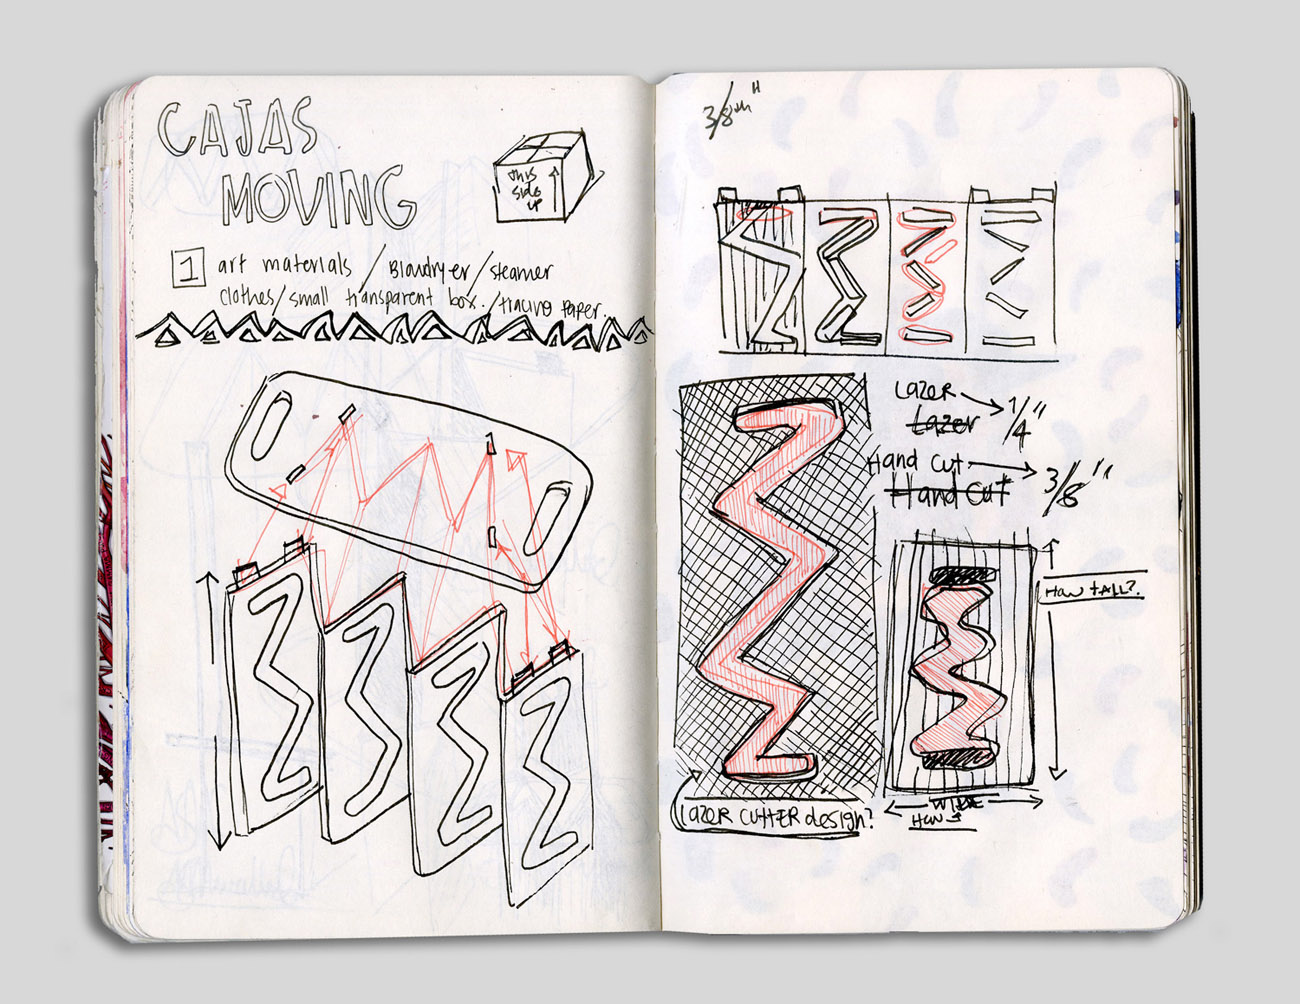 CAJAS
MOVING
this
side
up
1 art materials / Blowdryer / steamer
clothes / small transparent box. / tracing paper.
3/8th"
LAZER
Lazer
1/4"
Hand Cut
Hand Cut
3/8"
HOW TALL?
LAZER CUTTER design?
WIDE
HOW